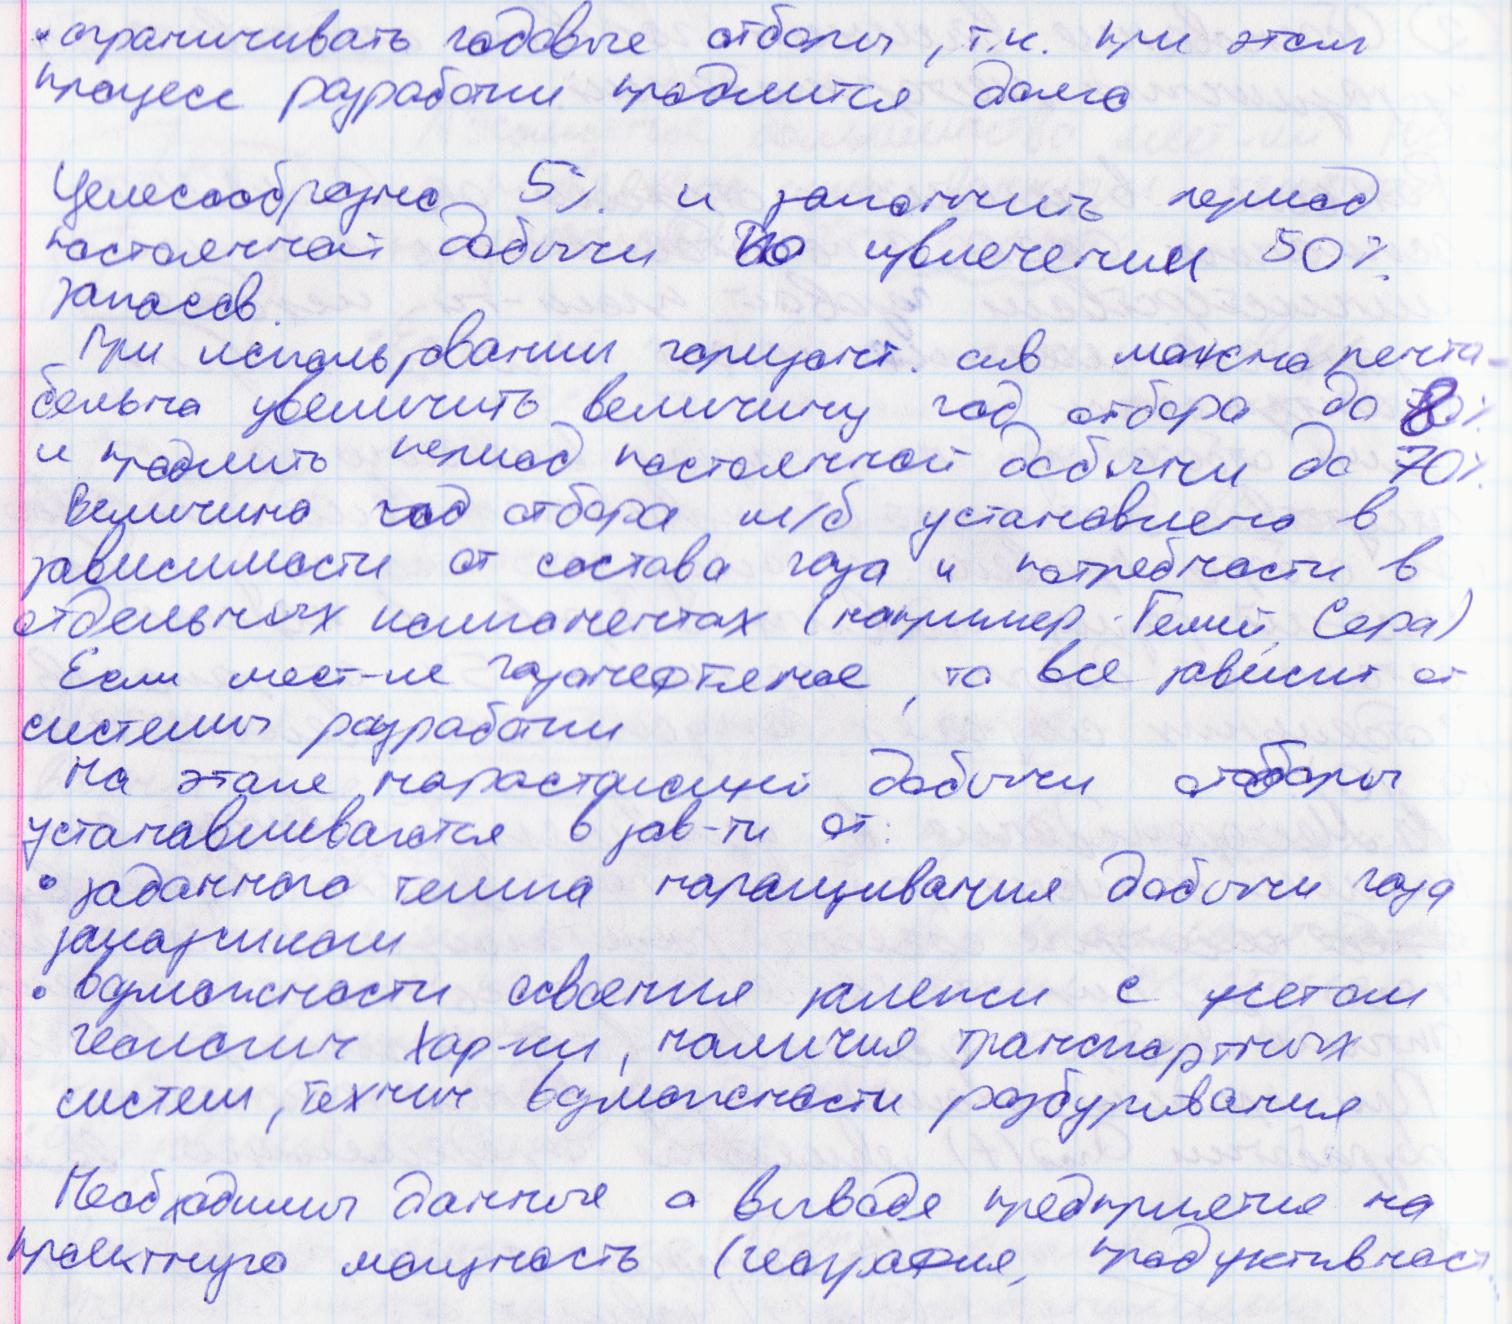 • ограничивать годовые отборы, т.к. при этом
процесс разработки продлится долго
Целесообразно 5% и закончить период
постоянной добычи по извлечении 50%
запасов.
При использовании горизонт. скв можно рента-
бельно увеличить величину год отбора до 8%
и продлить период постоянной добычи до 70%
Величина год отбора м/б установлена в
зависимости от состава газа и потребности в
отдельных компонентах (например Гелий, Сера)
Если мест-ие газонефтяное, то все зависит от
системы разработки
На этапе нарастающей добычи отборы
устанавливаются в зав-ти от:
• заданного темпа наращивания добычи газа
заказчиком
• возможности освоения залежи с учетом
геологич хар-ки, наличия транспортных
систем, технич возможности разбуривания
Необходимы данные о выводе предприятия на
проектную мощность (география, продуктивност